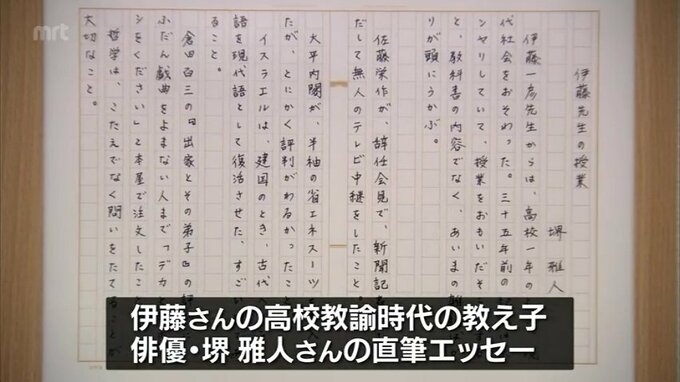 mrt
伊藤先生の授業
堺 雅人
伊藤一彦先生からは、高校一年の
代社会をおそわった。三十五年前の記
ンヤリしていて、授業をおもいだそ
と、教科書の内容でなく、あいまの
りが頭にうかぶ。
佐藤栄作が、辞任会見で、新聞記
だして無人のテレビ中継をしたこと。
大平内閣が、半袖の省エネスーツ
たが、とにかく評判がわるかったこと
イスラエルは、建国のとき、古代ヘ
語を現代語として復活させた、すごい
ること。
倉田百三の『出家とその弟子』の
ふだん戯曲をよまない人まで「デカと
シをください」と本屋で注文したこと
哲学は、こたえでなく問いをたてることが
大切なこと。
伊藤さんの高校教諭時代の教え子
俳優・堺 雅人さんの直筆エッセー